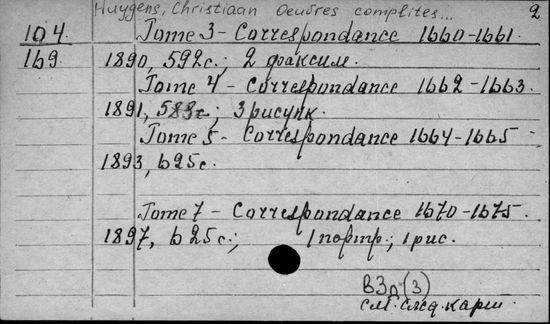 Huygens, Christiaan Oeuvres complites... 2
104. Tome 3 - Correspondance 1660-1661.
169 1890, 592 с.; 2 факсим.
Tome 4 - Correspondance 1662-1663.
1891, 583 с; 3 рисунк.
Tome 5 - Correspondance 1664-1665
1893, 625 с.
Tome 7 - Correspondance 1670-1675.
1897, 625 с.; 1 портр.; 1 рис.
ВЗр (3)
см. след. карт.